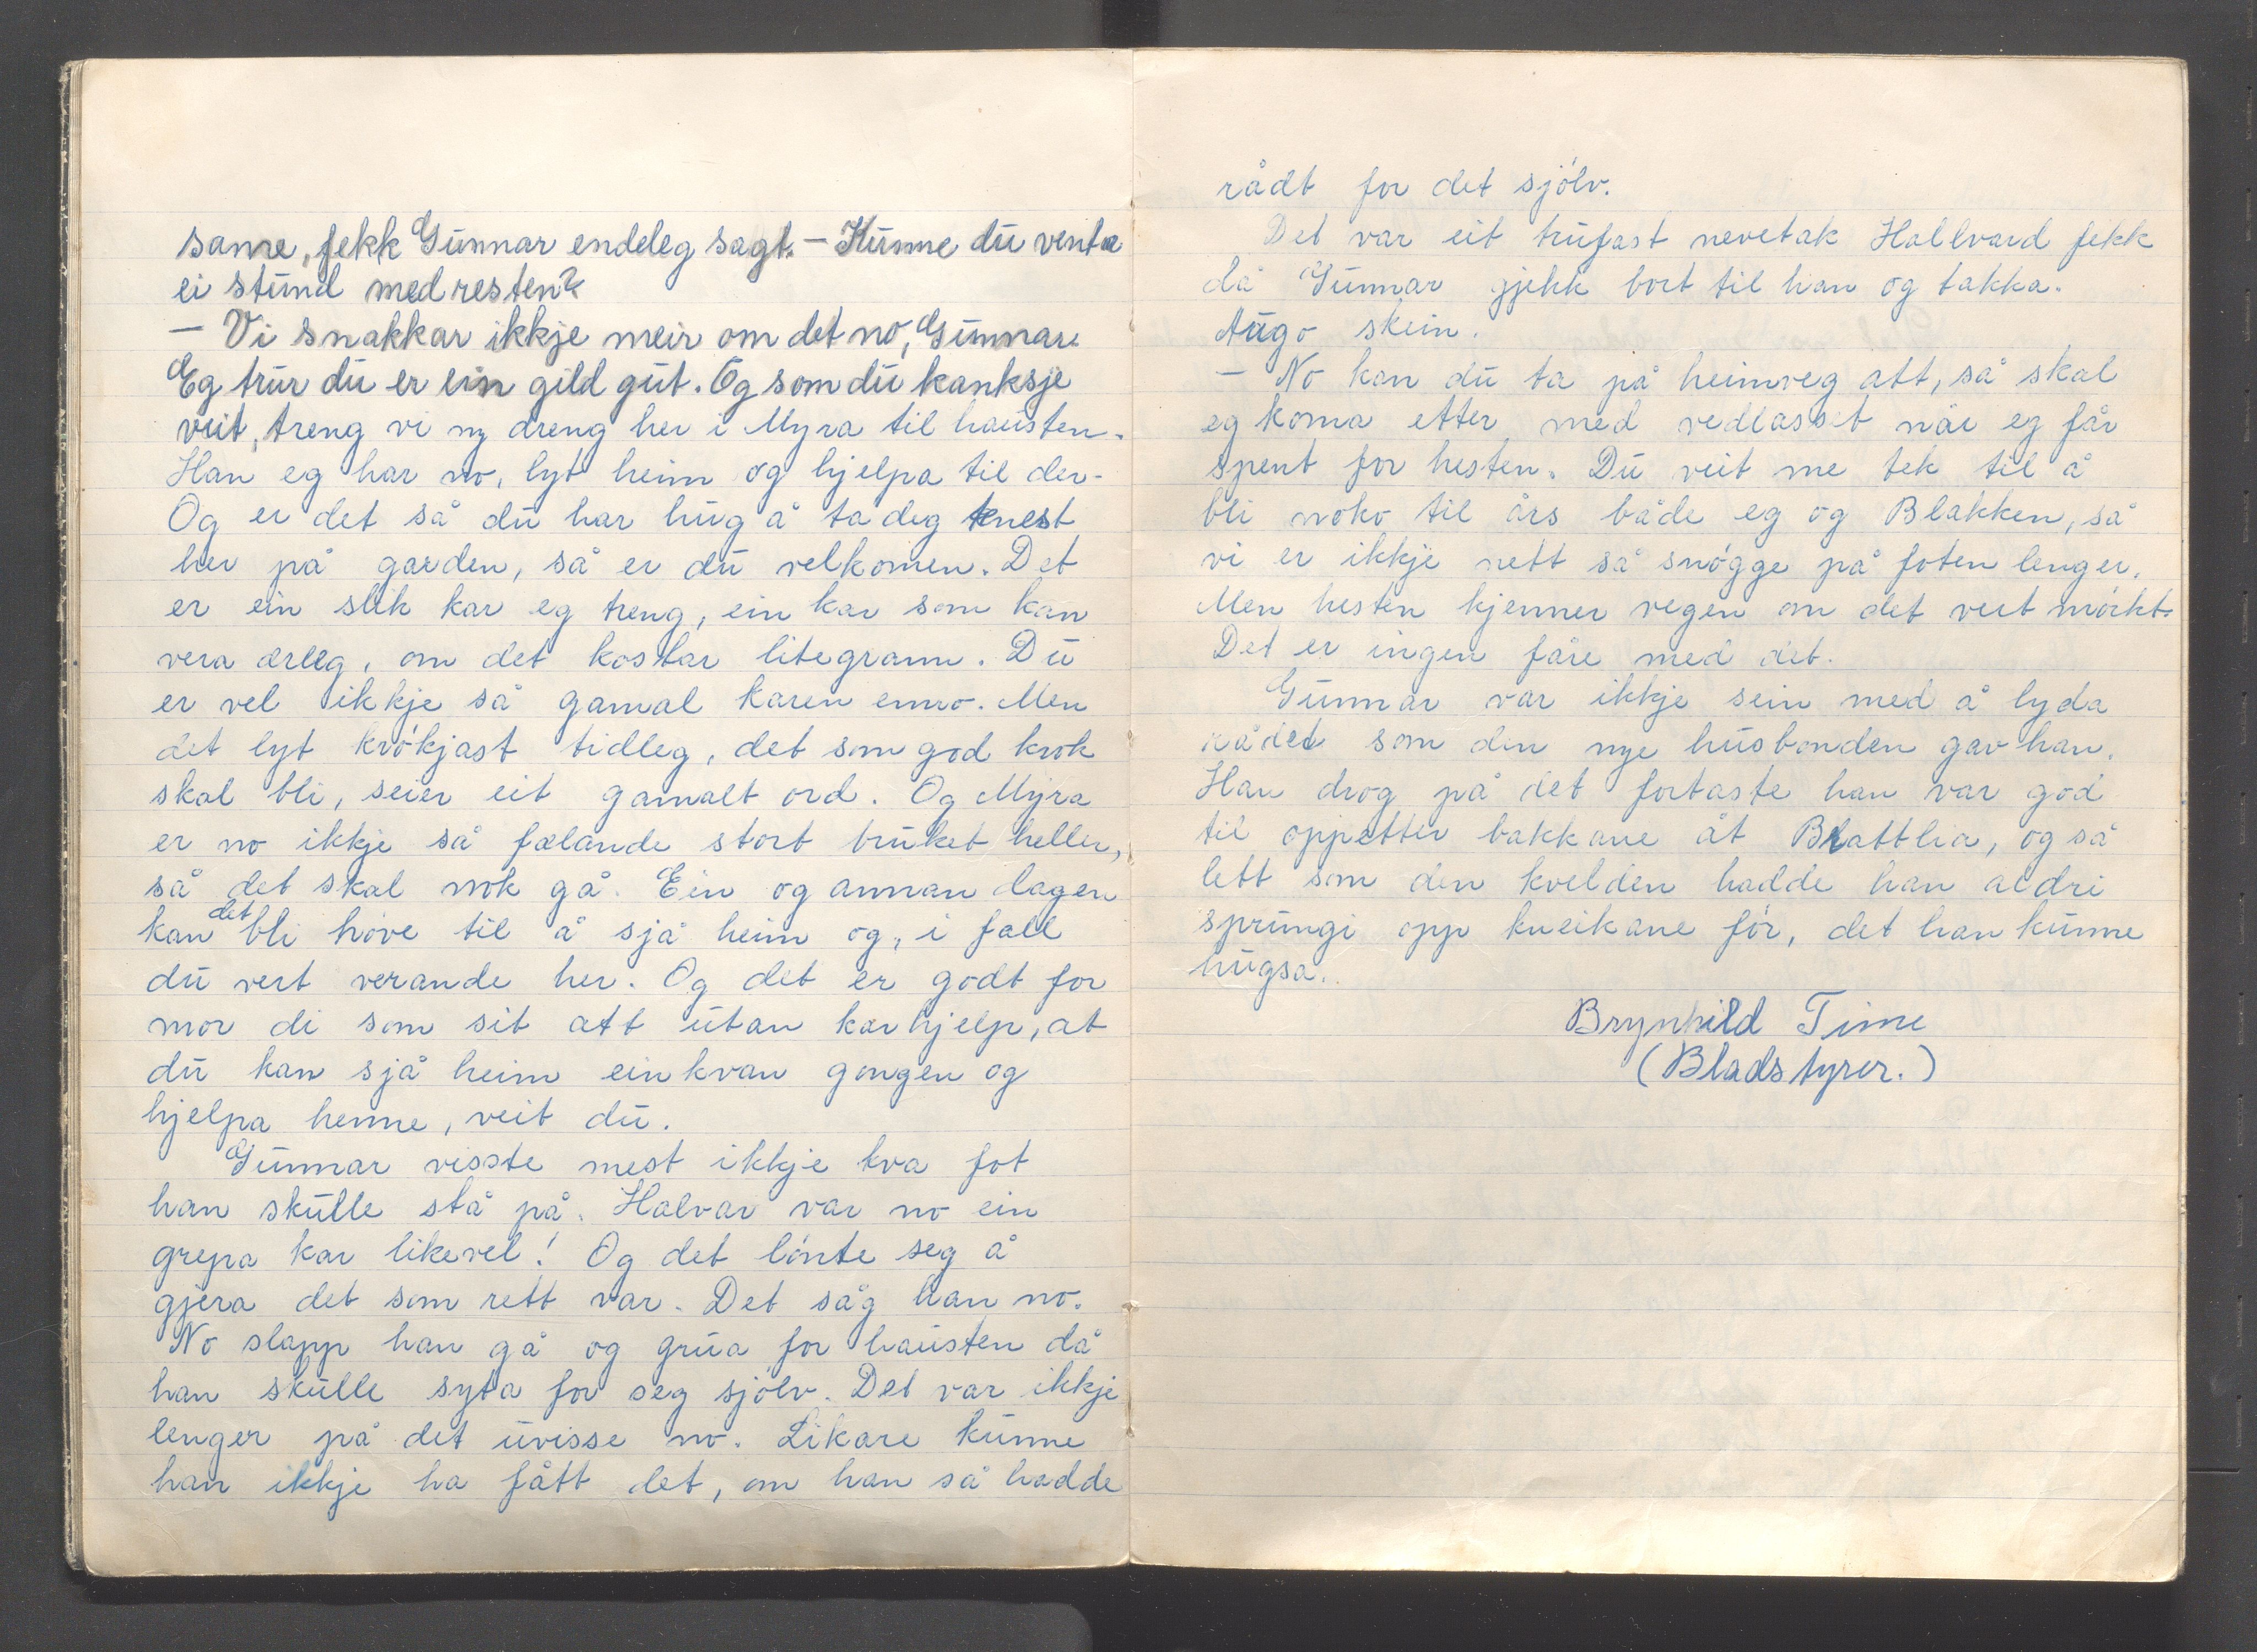 same, fekk Gunnar endeleg sagt. – Kunne du venta
ei stund med resten?
– Vi snakkar ikkje meir om det no, Gunnar.
Eg trur du er ein gild gut. Og som du kanksje
veit, treng vi ny dreng her i Myra til hausten.
Han eg har no, lyt heim og hjelpa til der.
Og er det så du har hug å ta deg tenest
her på garden, så er du velkomen. Det
er ein slik kar eg treng, ein kar som kan
vera ærleg, om det kostar litegrann. Du
er vel ikkje så gamal karen enno. Men
det lyt krókjast tidleg, det som god krok
skal bli, seier eit gamalt ord. Og Myra
er no ikkje så fælande stort bruket heller,
så det skal nok gå. Ein og annan dagen
kan det bli hóve til å sjå heim og, i fall
du vert verande her. Og det er godt for
mor di som sit att utan karhjelp, at
du kan sjå heim einkvan gongen og
hjelpa henne, veit du.
Gunnar visste mest ikkje kva fot
han skulle stå på. Halvar var no ein
grepa kar likevel! Og det lónte seg å
gjera det som rett var. Det såg han no.
No slapp han gå og grua for hausten då
han skulle syta for seg sjólv. Det var ikkje
lenger på det uvisse no. Likare kunne
han ikkje ha fått det, om han så hadde
rådt for det sjólv.
Det var eit trufast nevetak Hallvard fekk
då Gunnar gjekk bort til han og takka.
Augo skein.
– No kan du ta på heimveg att, så skal
eg koma etter med vedlasset når eg får
spent for hesten. Du veit me tek til å
bli noko til års både eg og Blakken, så
vi er ikkje nett så snógge på foten lenger.
Men hesten kjenner vegen om det vert mórkt.
Det er ingen fåre med det.
Gunnar var ikkje sein med å lyda
rådet som den nye husbonden gav han.
Han drog på det fortaste han var god
til oppetter bakkane åt Brattlia, og så
lett som den kvelden hadde han aldri
sprungi opp kneikane fór, det han kunne
hugsa.
Brynhild Time
(Bladstyrer.)